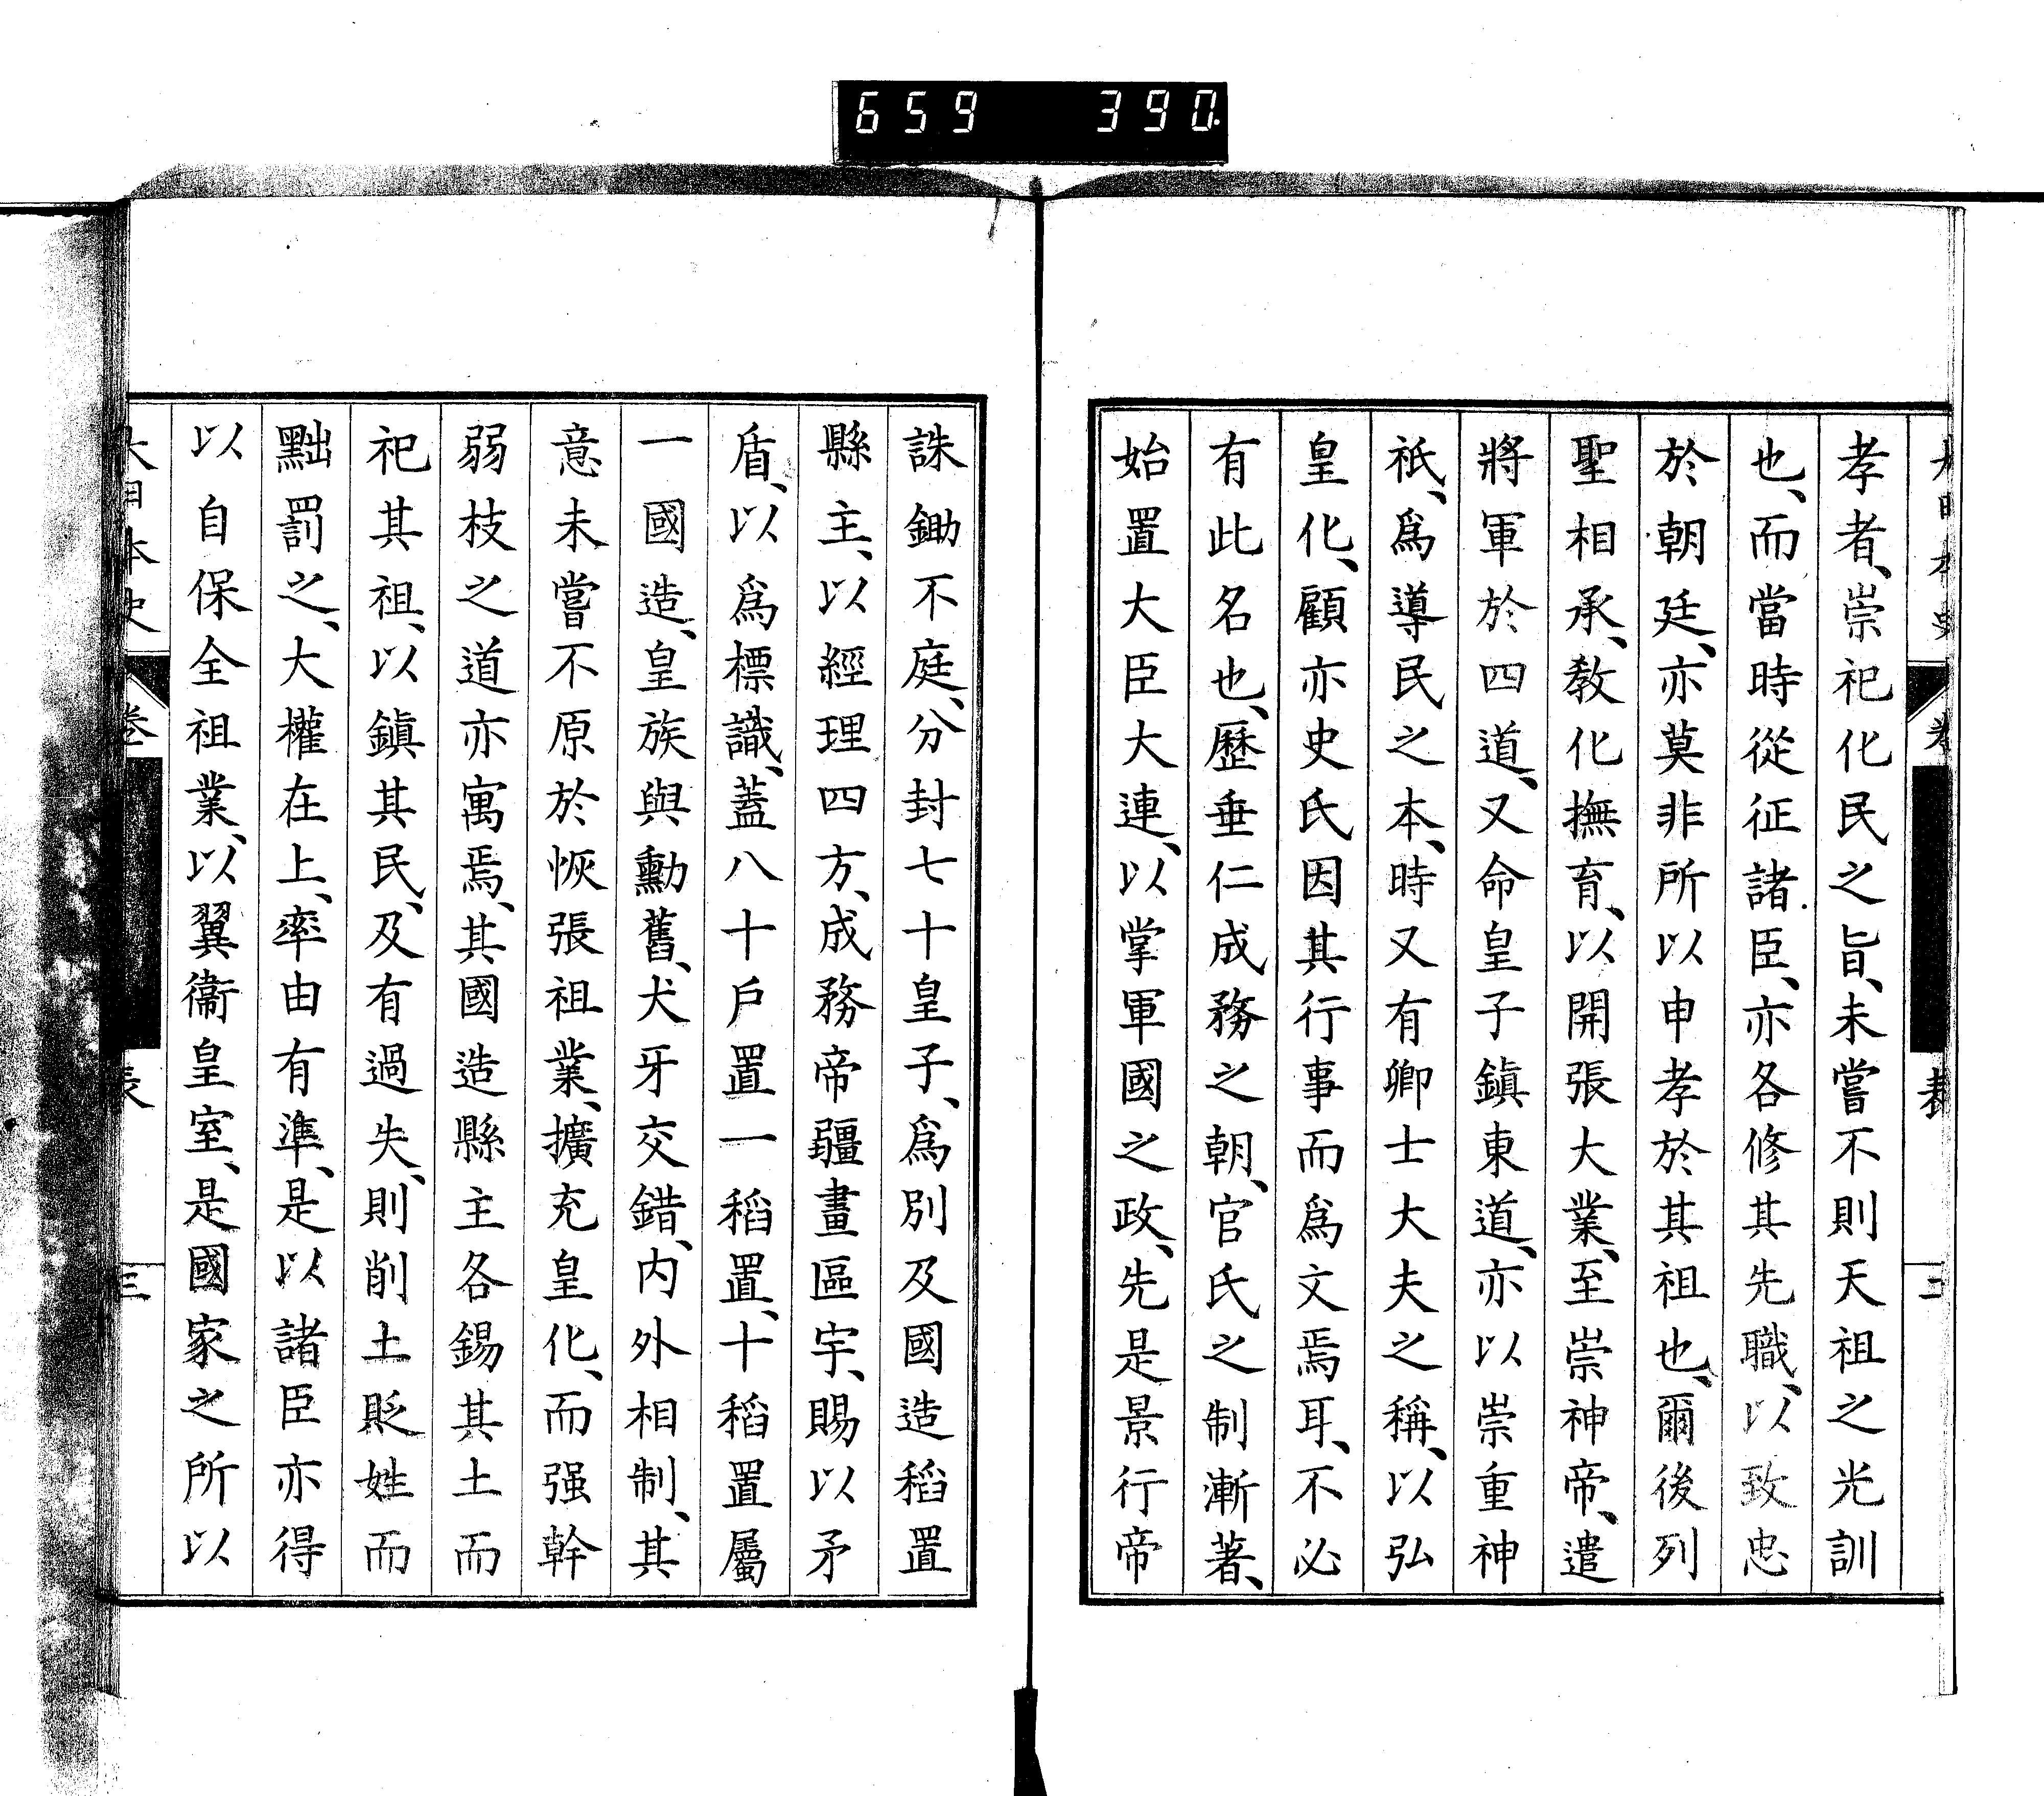 659 390
大日本史 卷 表
孝者、崇祀化民之旨、未嘗不則天祖之光訓
也、而當時從征諸臣、亦各修其先職、以致忠
於朝廷、亦莫非所以申孝於其祖也、爾後列
聖相承、敎化撫育、以開張大業、至崇神帝、遣
將軍於四道、又命皇子鎭東道、亦以崇重神
祇、爲導民之本、時又有卿士大夫之稱、以弘
皇化、顧亦史氏因其行事而爲文焉耳、不必
有此名也、歷垂仁成務之朝、官氏之制漸著、
始置大臣大連、以掌軍國之政、先是景行帝
誅鋤不庭、分封七十皇子、爲別及國造稻置
縣主、以經理四方、成務帝疆畫區宇、賜以矛
盾、以爲標識、蓋八十戶置一稻置、十稻置屬
一國造、皇族與勳舊、犬牙交錯、內外相制、其
意未嘗不原於恢張祖業、擴充皇化、而强幹
弱枝之道亦寓焉、其國造縣主各錫其土而
祀其祖、以鎭其民、及有過失、則削土貶姓而
黜罰之、大權在上、率由有準、是以諸臣亦得
以自保全祖業、以翼衞皇室、是國家之所以
大日本史 卷 表 三